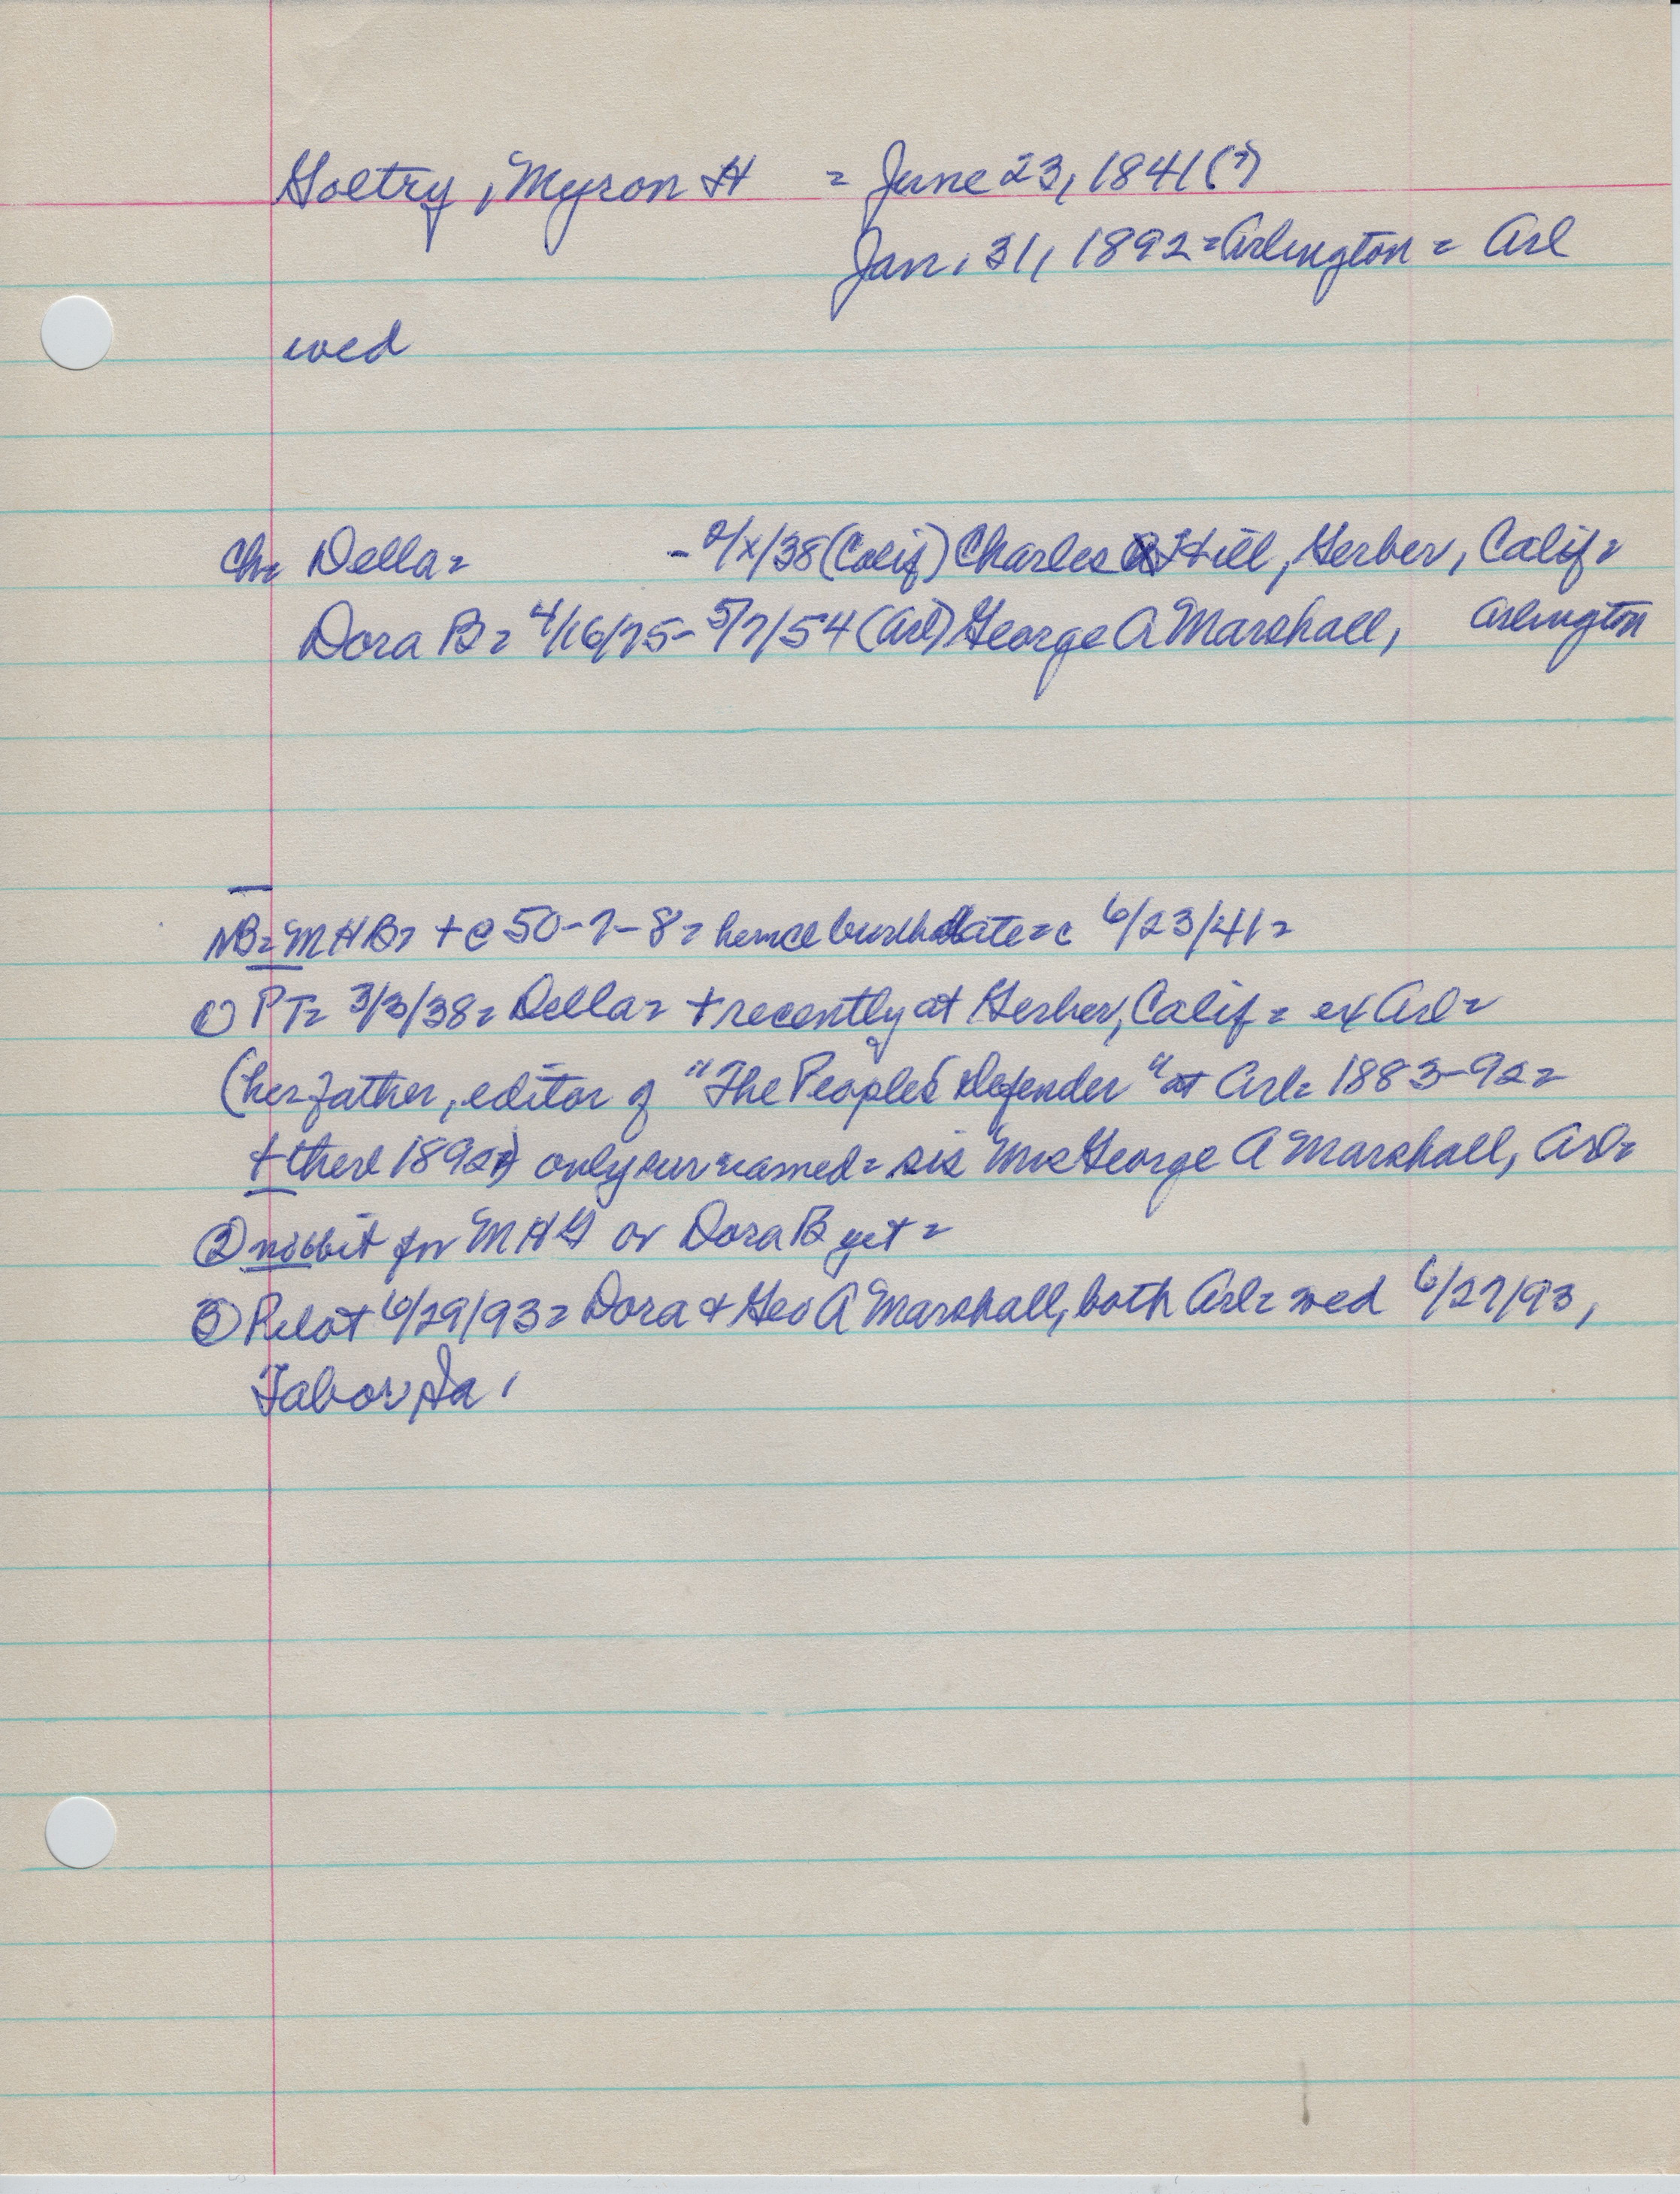 Goltry, Myron H = June 23, 1841(?)
Jan. 31, 1892 = Arlington = Arl
wed
Ch= Della= - 2/x/38 (Calif) Charles Hill, Gerber, Calif=
Dora B= 4/16/75 - 5/7/54 (Arl) George A Marshall, Arlington
NB= MHB= + @ 50-7-8= hence birthdate= c 6/23/41=
① PT= 3/3/38= Della= + recently at Gerber, Calif= ex Arl=
(her father, editor of "The People's Defender" at Arl= 1883-92=
+ there 1892) only sur named= sis Mrs George A Marshall, Arl=
② no obit for MHG or Dora B yet=
③ Pilot 6/29/93= Dora & Geo A Marshall, both Arl= wed 6/27/93,
Tabor, Ia.